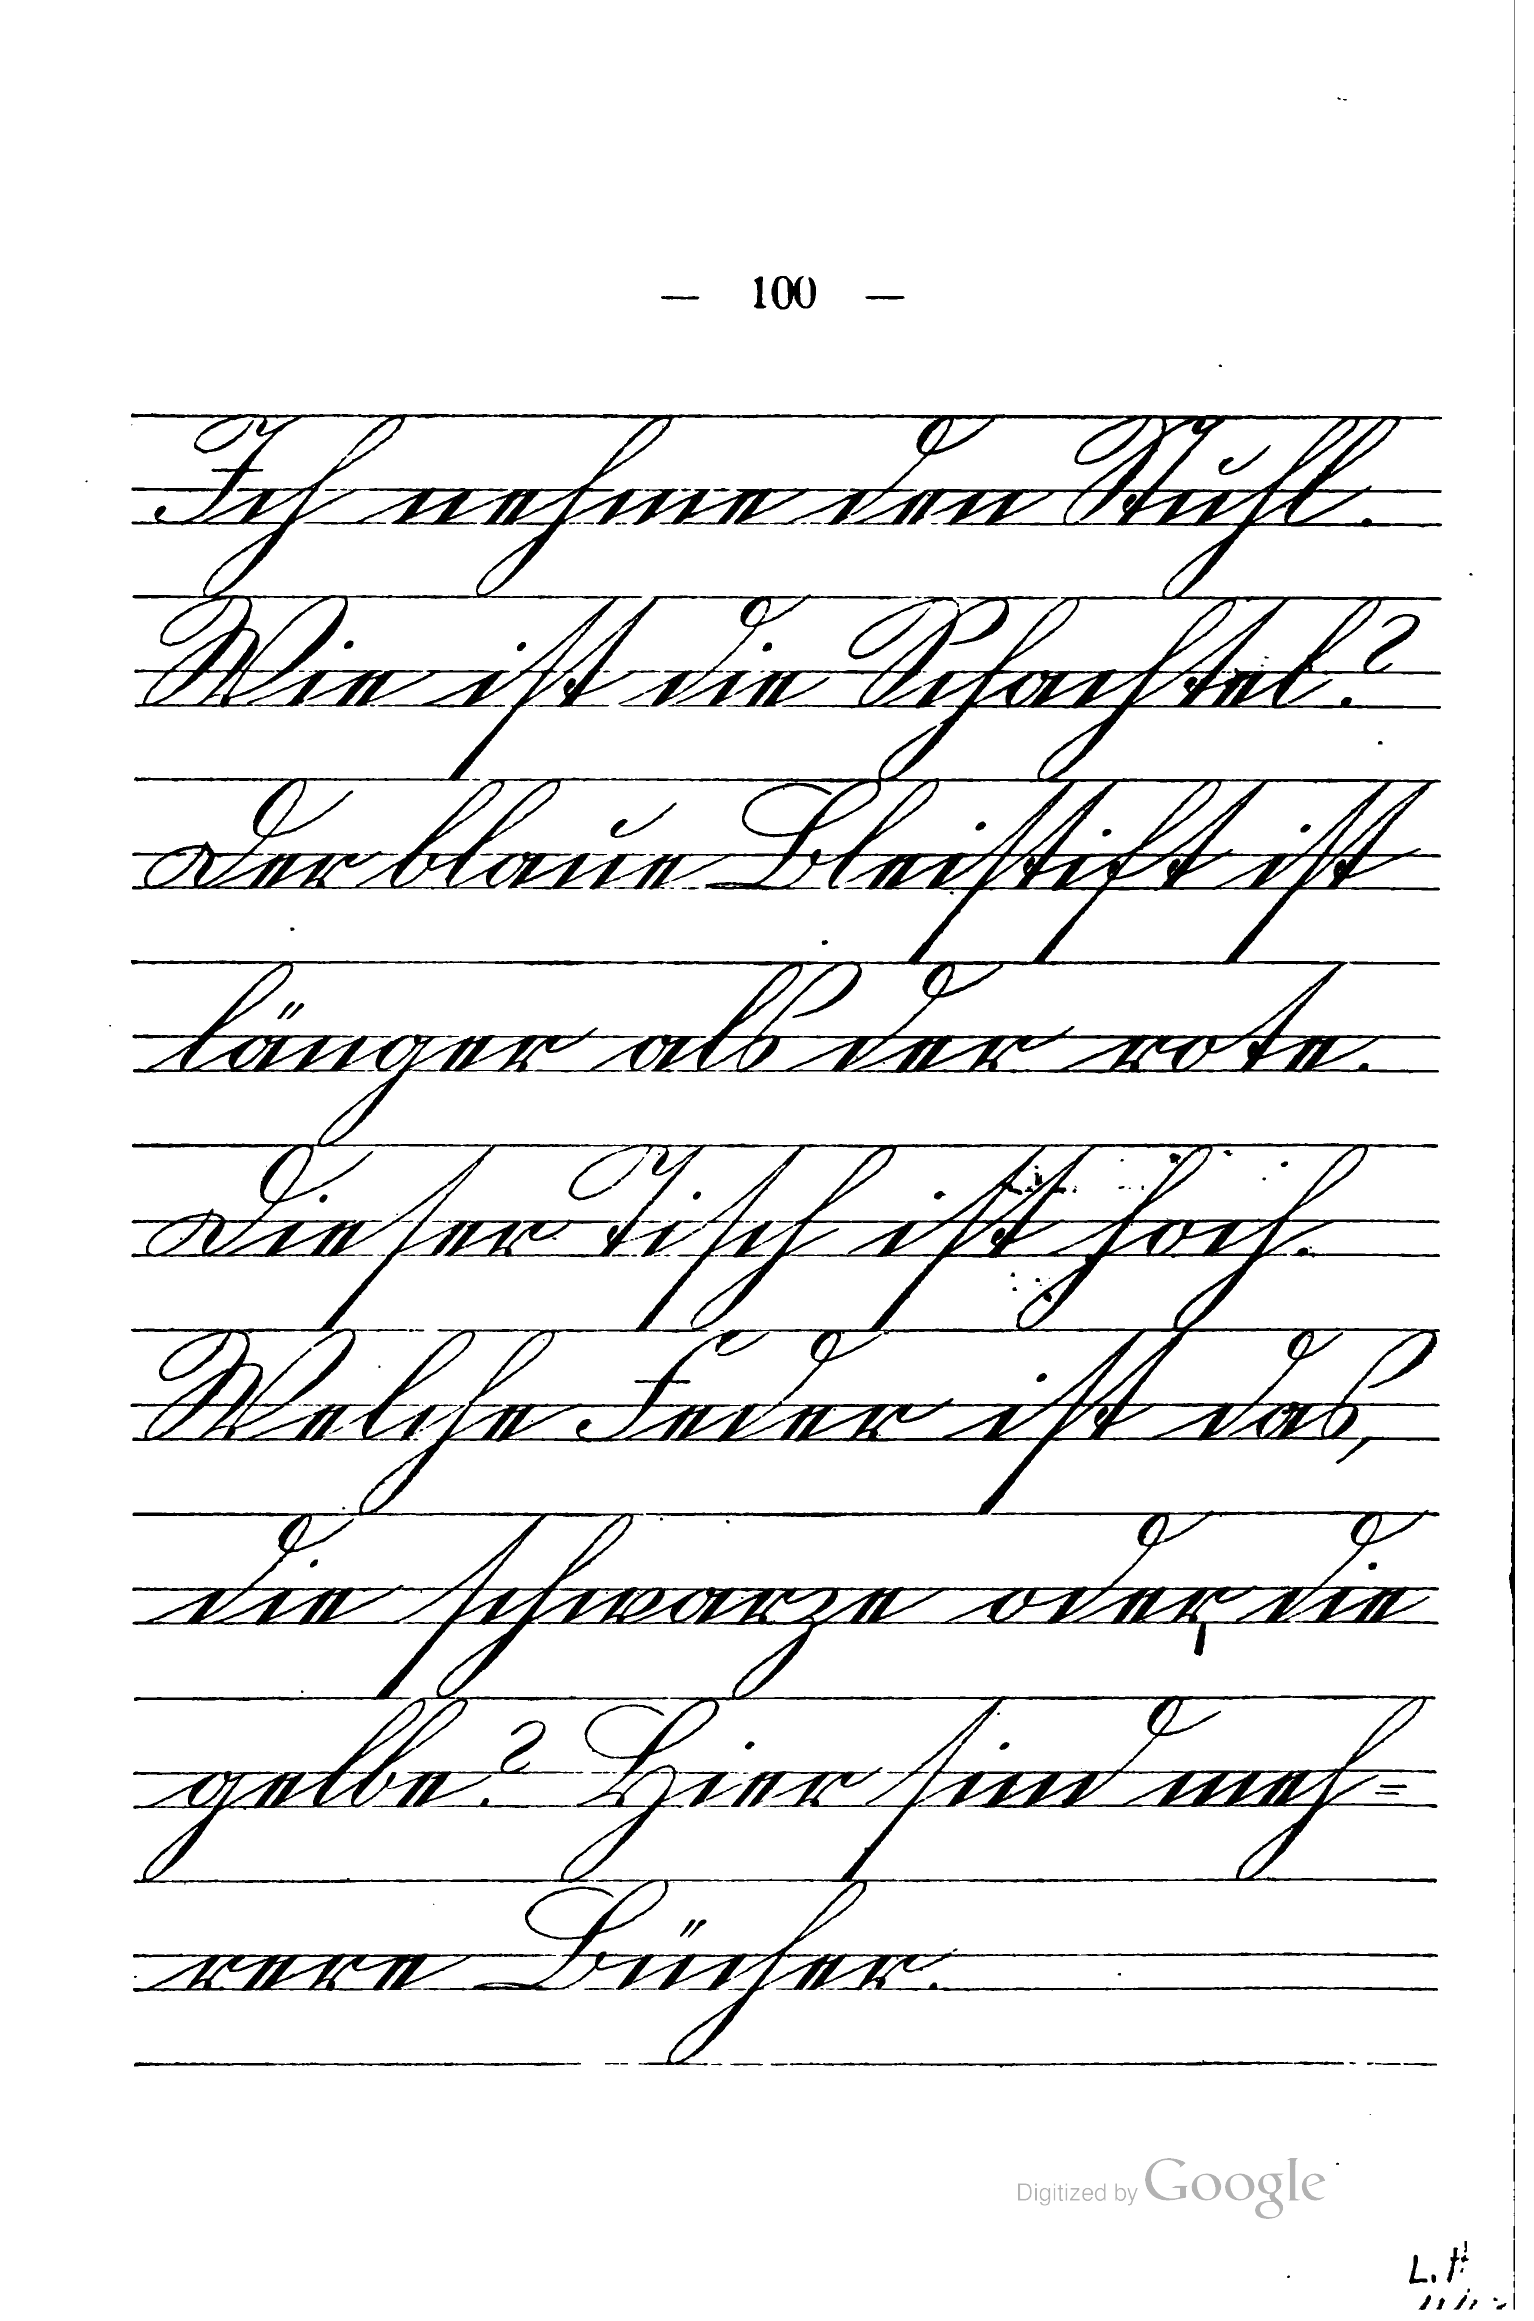 — 100 —
Ich nehme den Stuhl.
Wie ist die Schachtel?
Der blaue Bleistift ist
länger als der rote.
Dieser Tisch ist hoch.
Welche Feder ist das,
die schwarze oder die
gelbe? Hier sind meh=
rere Bücher.
Digitized by Google
L. H